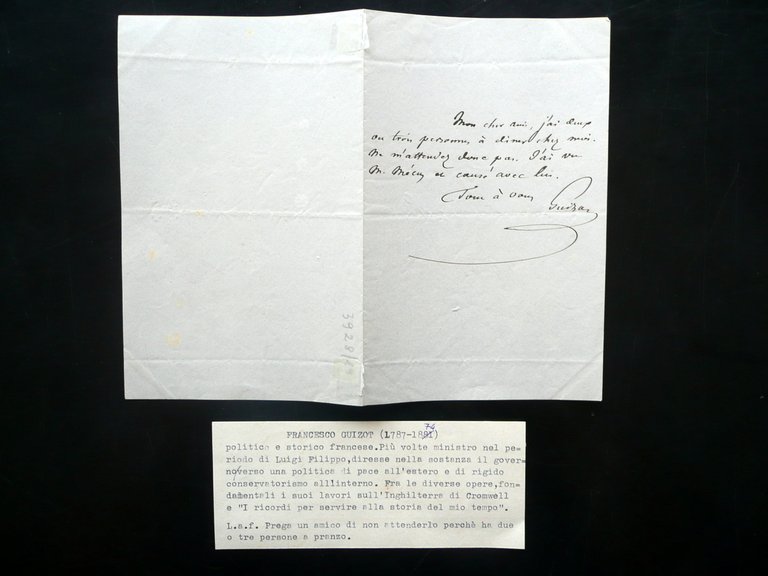 Mon cher ami, j'ai deux
ou trois personnes à diner chez moi.
Ne m'attendez donc pas. J'ai vu
M. et causé avec lui.
Tout à vous Guizot
3928/
FRANCESCO GUIZOT (1787-1881) 74
politico e storico francese.Più volte ministro nel pe=
riodo di Luigi Filippo,diresse nella sostanza il gover=
no/verso una politica di pace all'estero e di rigido
conservatorismo alll'interno. Fra le diverse opere,fon=
damentali i suoi lavori sull'Inghilterra di Cromwell
e "I ricordi per servire alla storia del mio tempo".
L.a.f. Prega un amico di non attenderlo perchè ha due
o tre persone a pranzo.